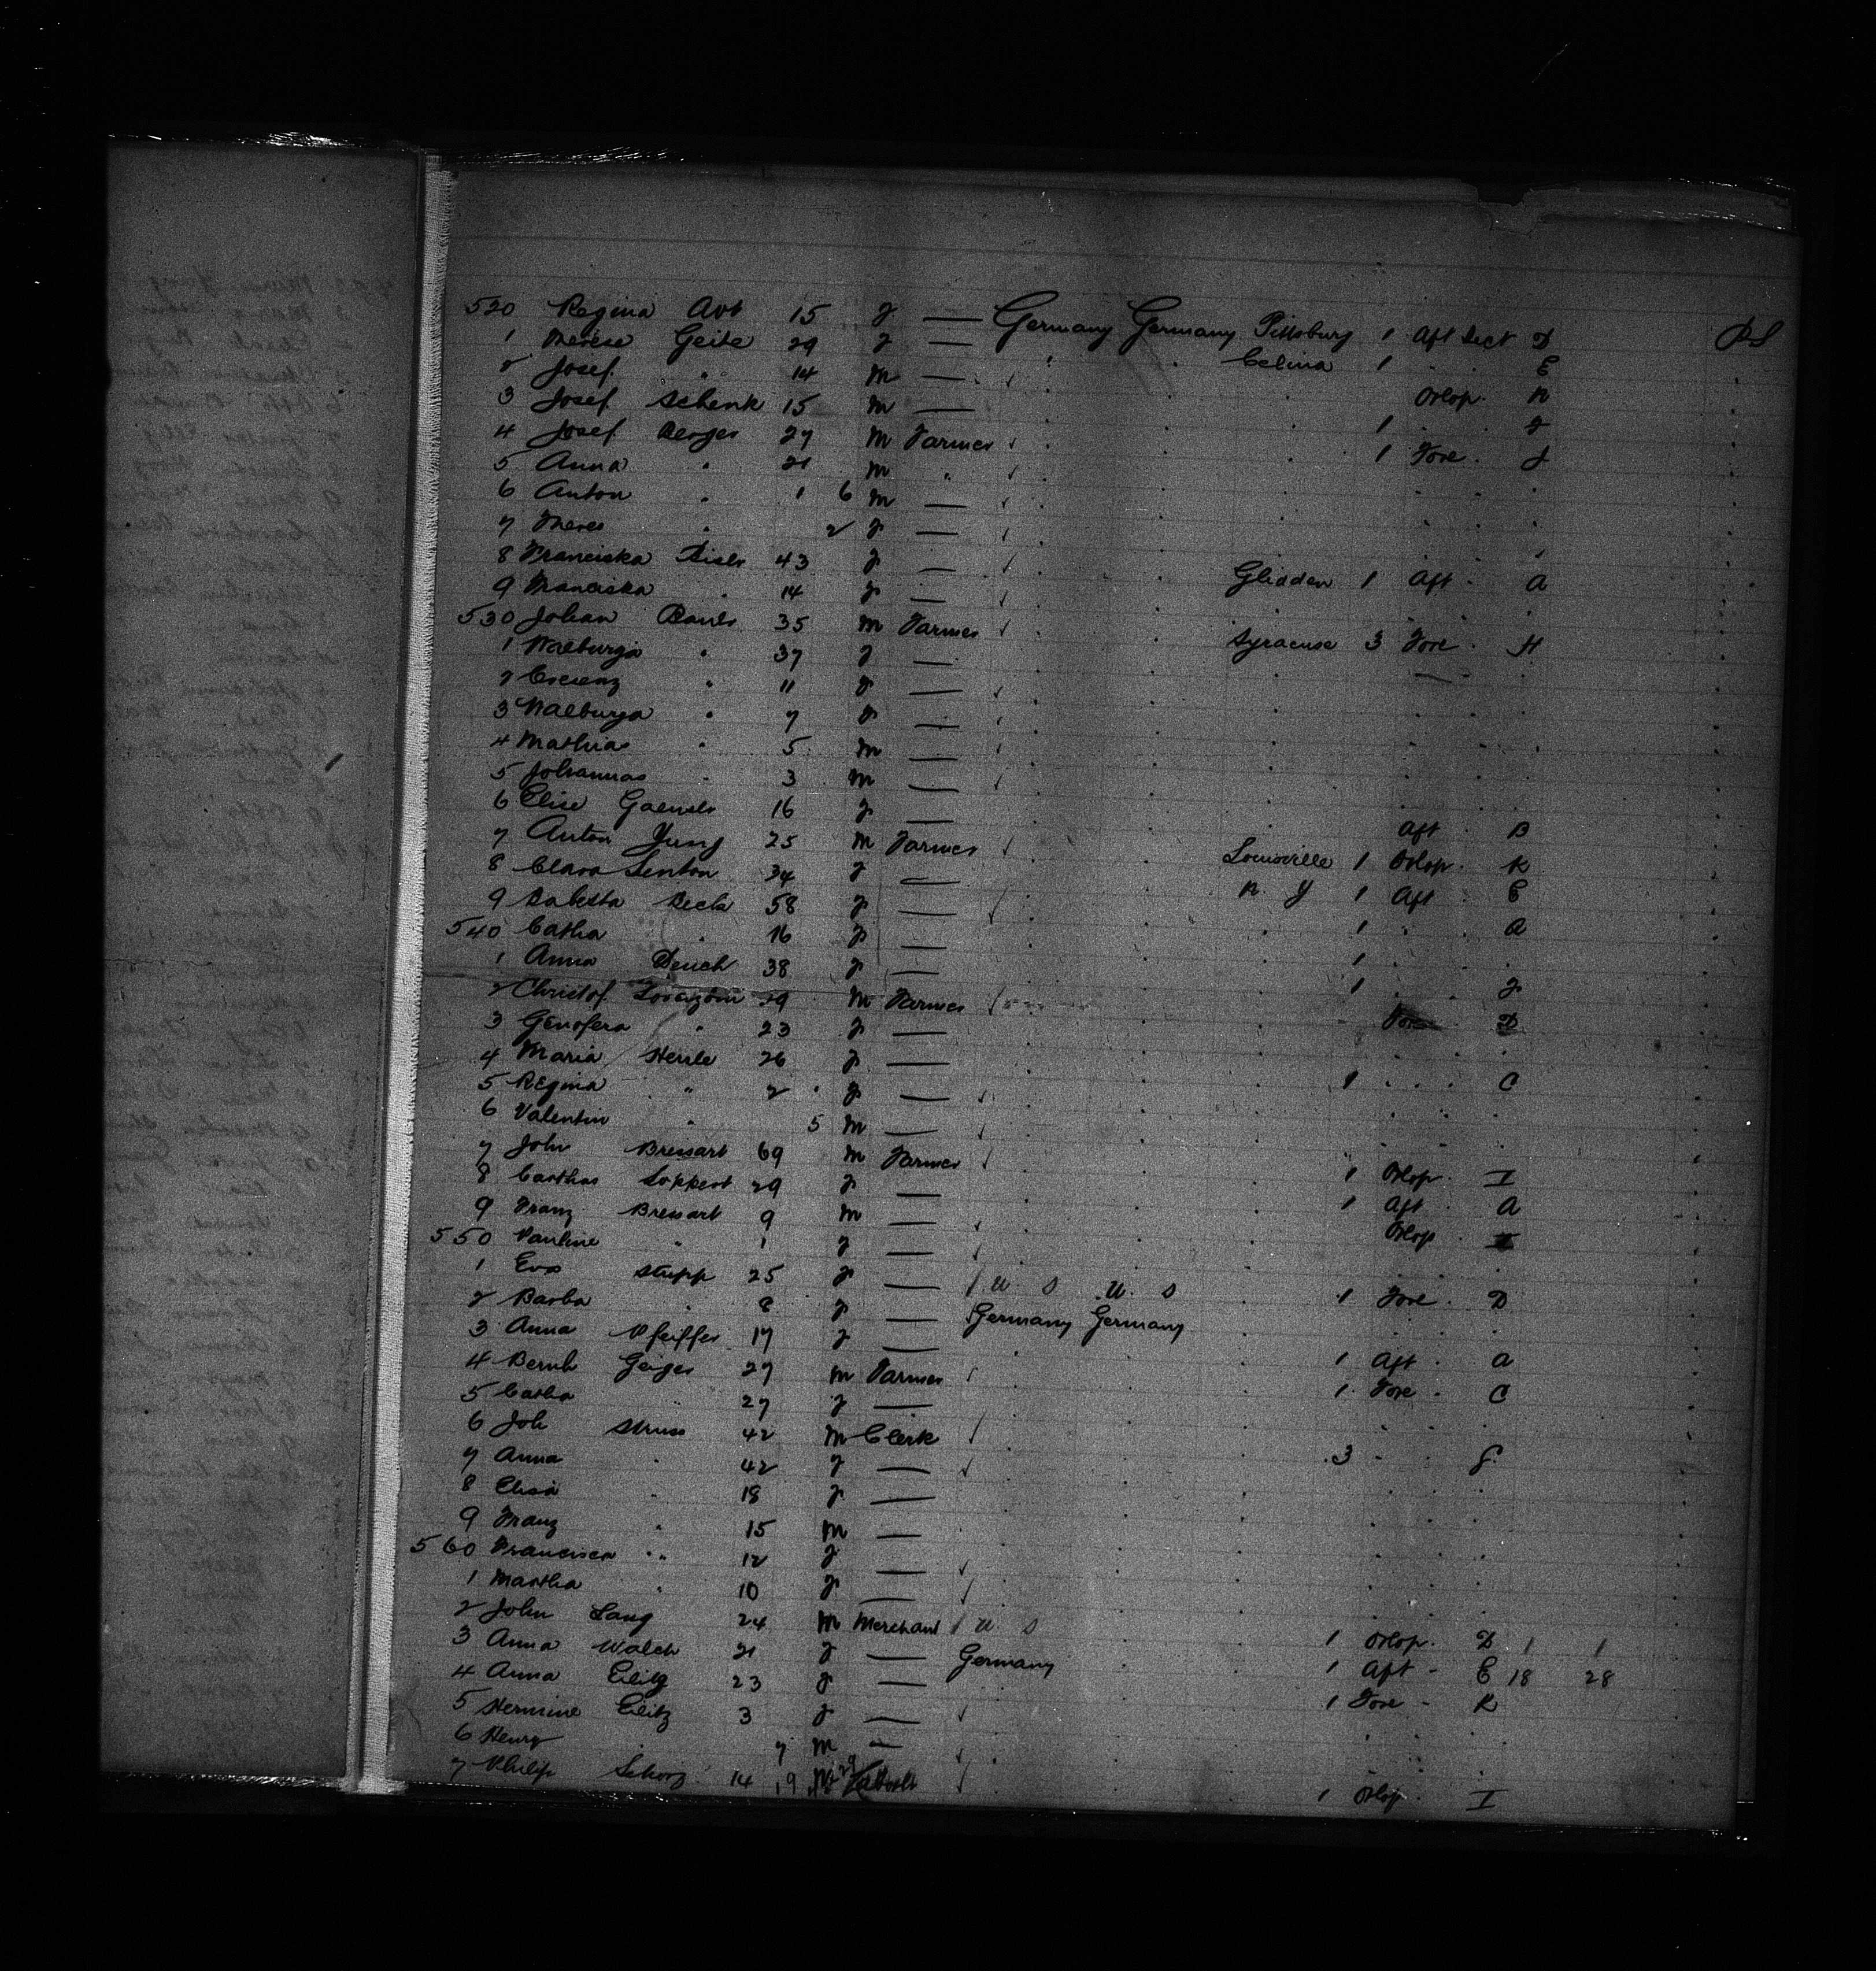 520 Regina Abt 15 f — Germany Germany Pittsburg 1 Aft Sect D PS
1 Therese Geite 29 f — " " Celina 1 " " E
2 Josef " 14 M — Orlop. K
3 Josef Schenk 15 M — 1
4 Josef Berger 27 M Farmer 1 Fore. J
5 Anna " 21 M "
6 Anton " 1 6 M —
7 Theres " 2 f —
8 Franciska 43 f — Glidden 1 Aft A
9 Franciska " 14 f —
530 Johan 35 M Farmer Syracuse 3 Fore H
1 Walburga " 37 f —
2 Crecenz " 11 f —
3 Walburga " 7 f —
4 Mathias " 5 M —
5 Johannas " 3 M —
6 Elise 16 f — Aft B
7 Anton Jung 25 M Farmer Louisville 1 Orlop. K
8 Clara Senton 34 f — N Y 1 Aft E
9 Beck 58 f — 1 " A
540 Catha " 16 f — 1
1 Anna 38 f — 1 f
2 Christof 29 M Farmer Fore D
3 Genofera " 23 f —
4 Maria Herrle 26 f — 1 C
5 Regina " 2 f —
6 Valentin " 5 M —
7 John Bressart 69 M Farmer 1 Orlop. I
8 Loppert 29 f — 1 Aft. A
9 Franz Bressart 9 M — Orlop I
550 Pauline " 1 f —
1 Eva Stupp 25 f — U S U. S 1 Fore. D
2 Barba " 8 f — Germany Germany
3 Anna Pfeiffer 17 f — 1 Aft. A
4 Bernh Geiger 27 M Farmer 1 Fore. C
5 Catha 27 f —
6 Joh Struss 42 M Clerk 3 G
7 Anna " 42 f —
8 Elisa " 18 f —
9 Franz " 15 M —
560 Francisca " 12 f —
1 Martha " 10 f —
2 John Lang 24 M Merchant U S 1 Orlop. D 1 1
3 Anna Walch 21 f — Germany 1 Aft - E 18 28
4 Anna Eilitz 23 f — 1 Fore - K
5 Hermine Eilitz 3 f —
6 Henry 7 M —
7 Philip Schorz 14 M 1 Orlop. I